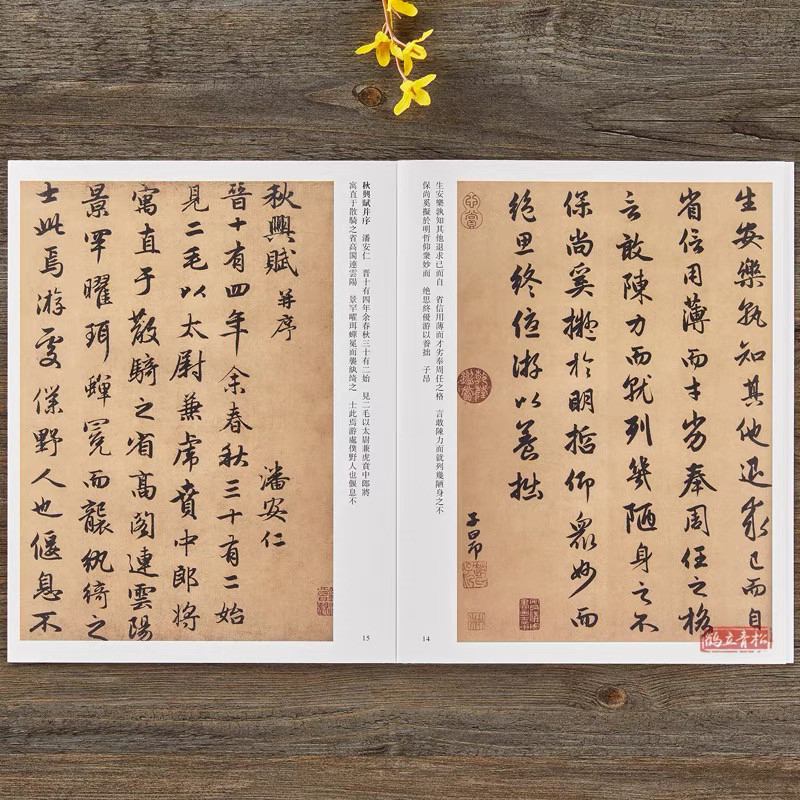 生安樂孰知其他退求己而自
省信用薄而才劣奉周任之格
言敢陳力而就列幾陋身之不
保尚奚擬於明哲仰眾妙而
絶思終優游以養拙
子昂
生安樂孰知其他退求己而自 省信用薄而才劣奉周任之格 言敢陳力而就列幾陋身之不
保尚奚擬於明哲仰衆妙而 絶思終優游以養拙 子昂
14
秋興賦并序 潘安仁 晋十有四年余春秋三十有二始 見二毛以太尉兼虎賁中郎將
寓直于散騎之省高閣連雲陽 景罕曜珥蟬冕而襲紈綺之 士此焉游處僕野人也偃息不
15
秋興賦 并序
潘安仁
晉十有四年余春秋三十有二始
見二毛以太尉兼虎賁中郎將
寓直于散騎之省高閣連雲陽
景罕曜珥蟬冕而襲紈綺之
士此焉游處僕野人也偃息不
鹤立青松